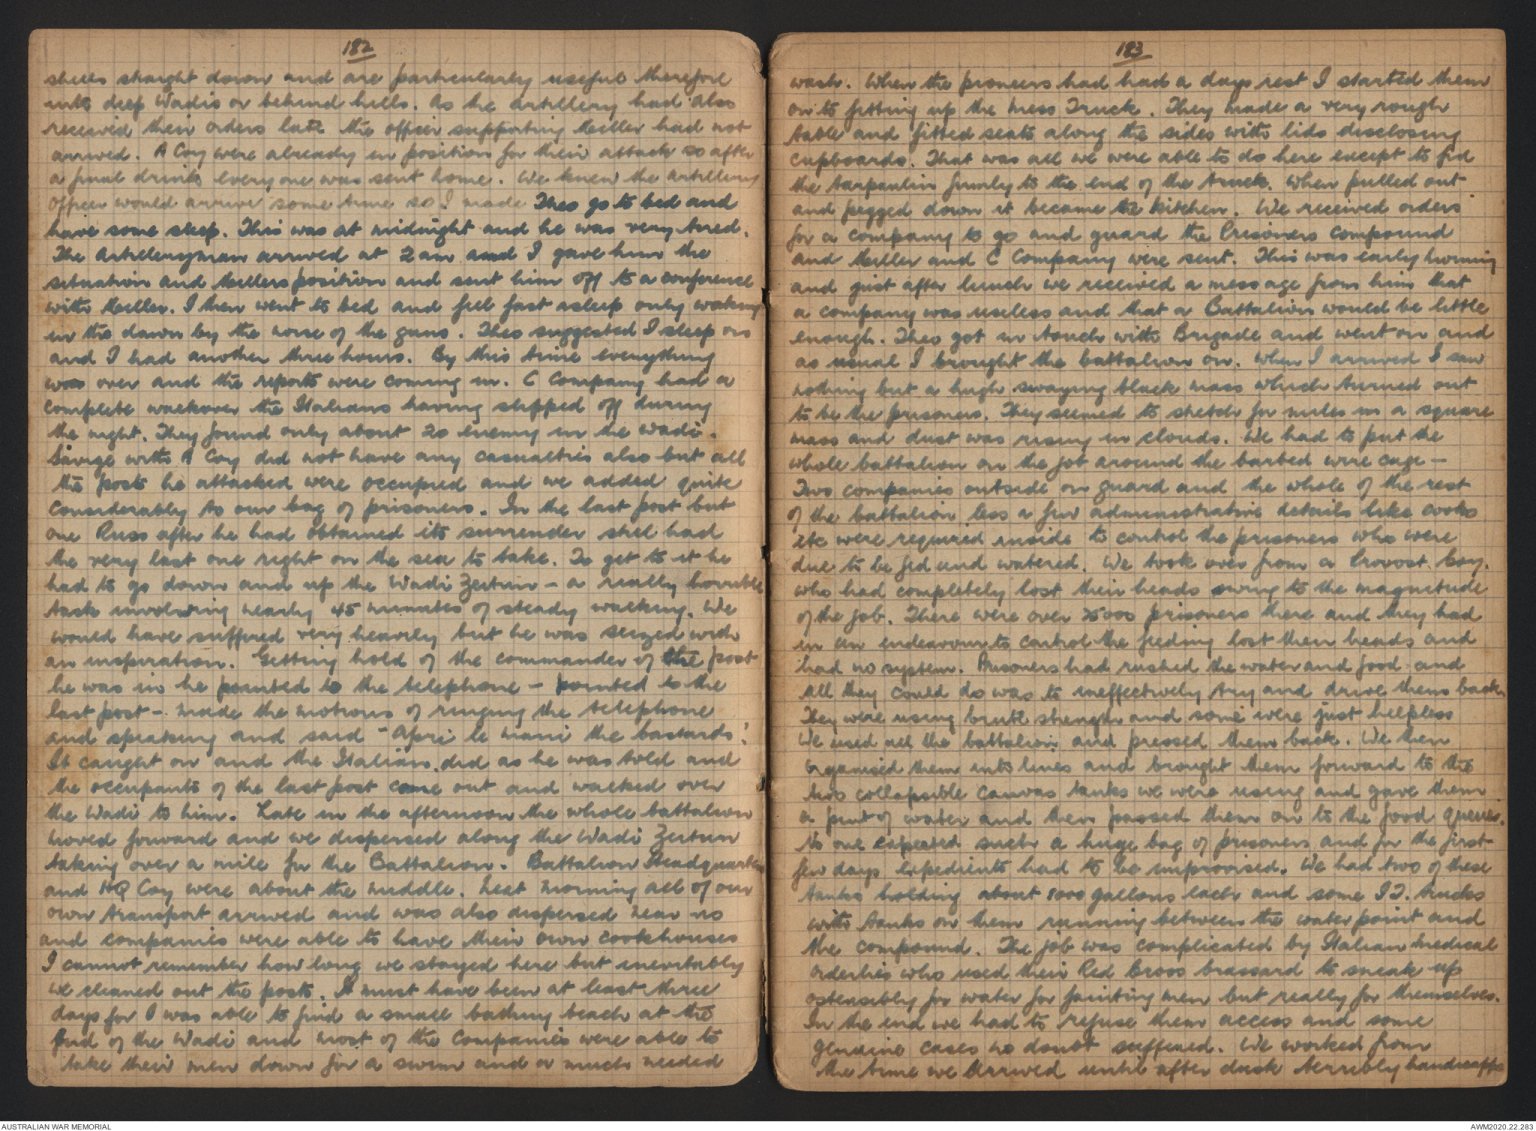 182
shells straight down and are particularly useful therefore
into deep Wadis or behind hills. As the artillery had also
received their orders late the officer supporting Miller had not
arrived. A Coy were already in positions for their attack so after
a final drink everyone was sent home. We knew the artillery
officer would arrive some time so I made Theo go to bed and
have some sleep. This was at midnight and he was very tired.
The artilleryman arrived at 2 am and I gave him the
situation and Millers position and sent him off to a conference
with Miller. I then went to bed and fell fast asleep only waking
in the dawn by the noise of the guns. Theo suggested I sleep on
and I had another three hours. By this time everything
was over and the reports were coming in. C Company had a
complete walkover the Italians having slipped off during
the night. They found only about 20 enemy in the wadi.
Savige with A Coy did not have any casualties also but all
the posts he attacked were occupied and we added quite
considerably to our bag of prisoners. In the last post but
one Russ after he had obtained its surrender still had
the very last one right on the sea to take. To get to it he
had to go down and up the Wadi Zeitun - a really horrible
task involving nearly 45 minutes of steady walking. We
would have suffered very heavily but he was seized with
an inspiration. Getting hold of the commander of the post
he was in he pointed to the telephone - pointed to the
last post - made the motions of ringing the telephone
and speaking and said "Apri le mani the bastards".
It caught on and the Italian did as he was told and
the occupants of the last post came out and walked over
the Wadi to him. Late in the afternoon the whole battalion
moved forward and we dispersed along the Wadi Zeitun
taking over a mile for the Battalion. Battalion Headquarters
and HQ Coy were about the middle. Next morning all of our
own transport arrived and was also dispersed near us
and companies were able to have their own cookhouses
I cannot remember how long we stayed here but inevitably
we cleaned out the posts. It must have been at least three
days for I was able to find a small bathing beach at the
end of the Wadi and most of the Companies were able to
take their men down for a swim and a much needed
183
wash. When the pioneers had had a days rest I started them
on to fitting up the Mess Truck. They made a very rough
table and fitted seats along the sides with lids disclosing
cupboards. That was all we were able to do here except to fix
the tarpaulin firmly to the end of the truck. When pulled out
and pegged down it became the kitchen. We received orders
for a company to go and guard the Prisoners compound
and Miller and C Company were sent. This was early morning
and just after lunch we received a message from him that
a company was useless and that a Battalion would be little
enough. Theo got in touch with Brigade and went on and
as usual I brought the battalion on. When I arrived I saw
nothing but a high swaying black mass which turned out
to be the prisoners. They seemed to stretch for miles in a square
mass and dust was rising in clouds. We had to put the
whole battalion on the job around the barbed wire cage -
Two companies outside on guard and the whole of the rest
of the battalion less a few administrative details like cooks
etc were required inside to control the prisoners who were
due to be fed and watered. We took over from a Provost Coy.
who had completely lost their heads owing to the magnitude
of the job. There were over 25000 prisoners there and they had
in an endeavour to control the feeding lost their heads and
had no system. Prisoners had rushed the water and food and
all they could do was to ineffectively try and drive them back.
They were using brute strength and some were just helpless
We used all the battalion and pressed them back. We then
organised them into lines and brought them forward to the
two collapsible canvas tanks we were using and gave them
a pint of water and then passed them on to the food queues.
No one expected such a huge bag of prisoners and for the first
few days expedients had to be improvised. We had two of these
tanks holding about 1000 gallons each and some I.T. trucks
with tanks on them running between the water point and
the compound. The job was complicated by Italian medical
orderlies who used their Red Cross brassard to sneak up
ostensibly for water for fainting men but really for themselves.
In the end we had to refuse them access and some
genuine cases no doubt suffered. We worked from
the time we arrived until after dusk terribly handicapped
AUSTRALIAN WAR MEMORIAL
AWM2020.22.283